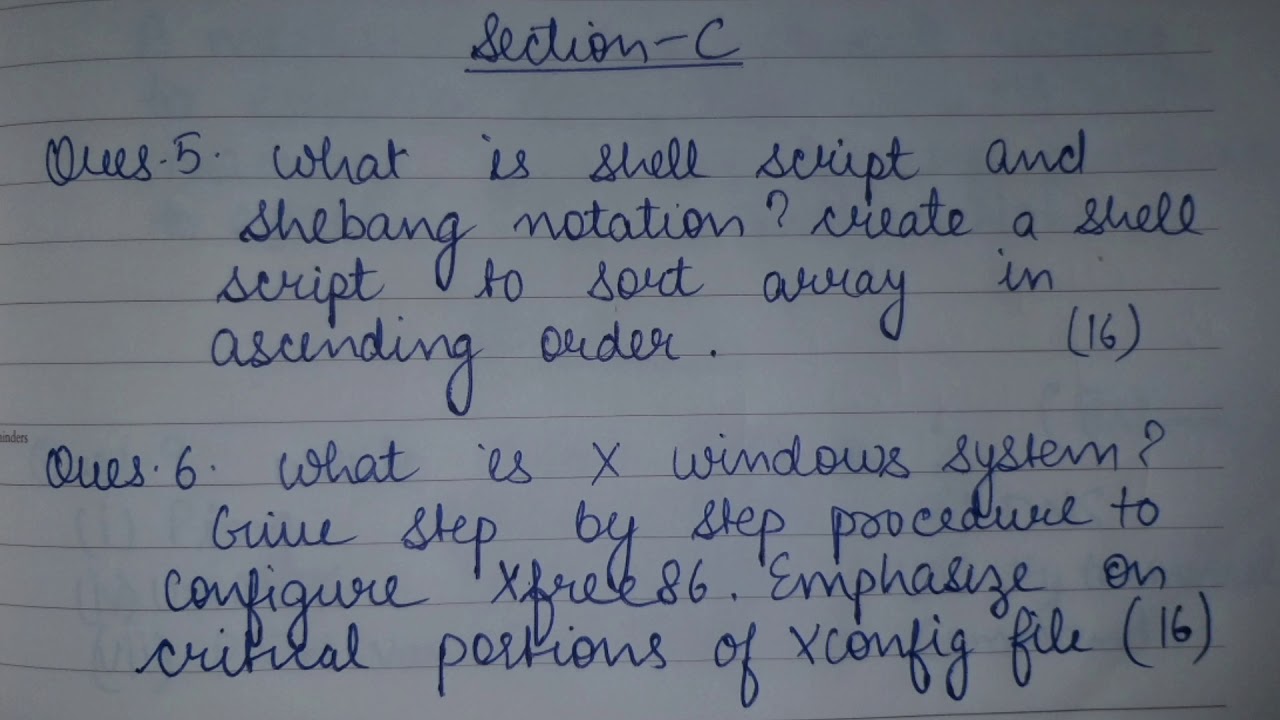 Section-C
Ques.5. What is shell script and
shebang notation? create a shell
script to sort array in
ascending order. (16)
inders
Ques.6. What is X windows system?
Give step by step procedure to
configure Xfree86. Emphasize on
critical portions of Xconfig file (16)